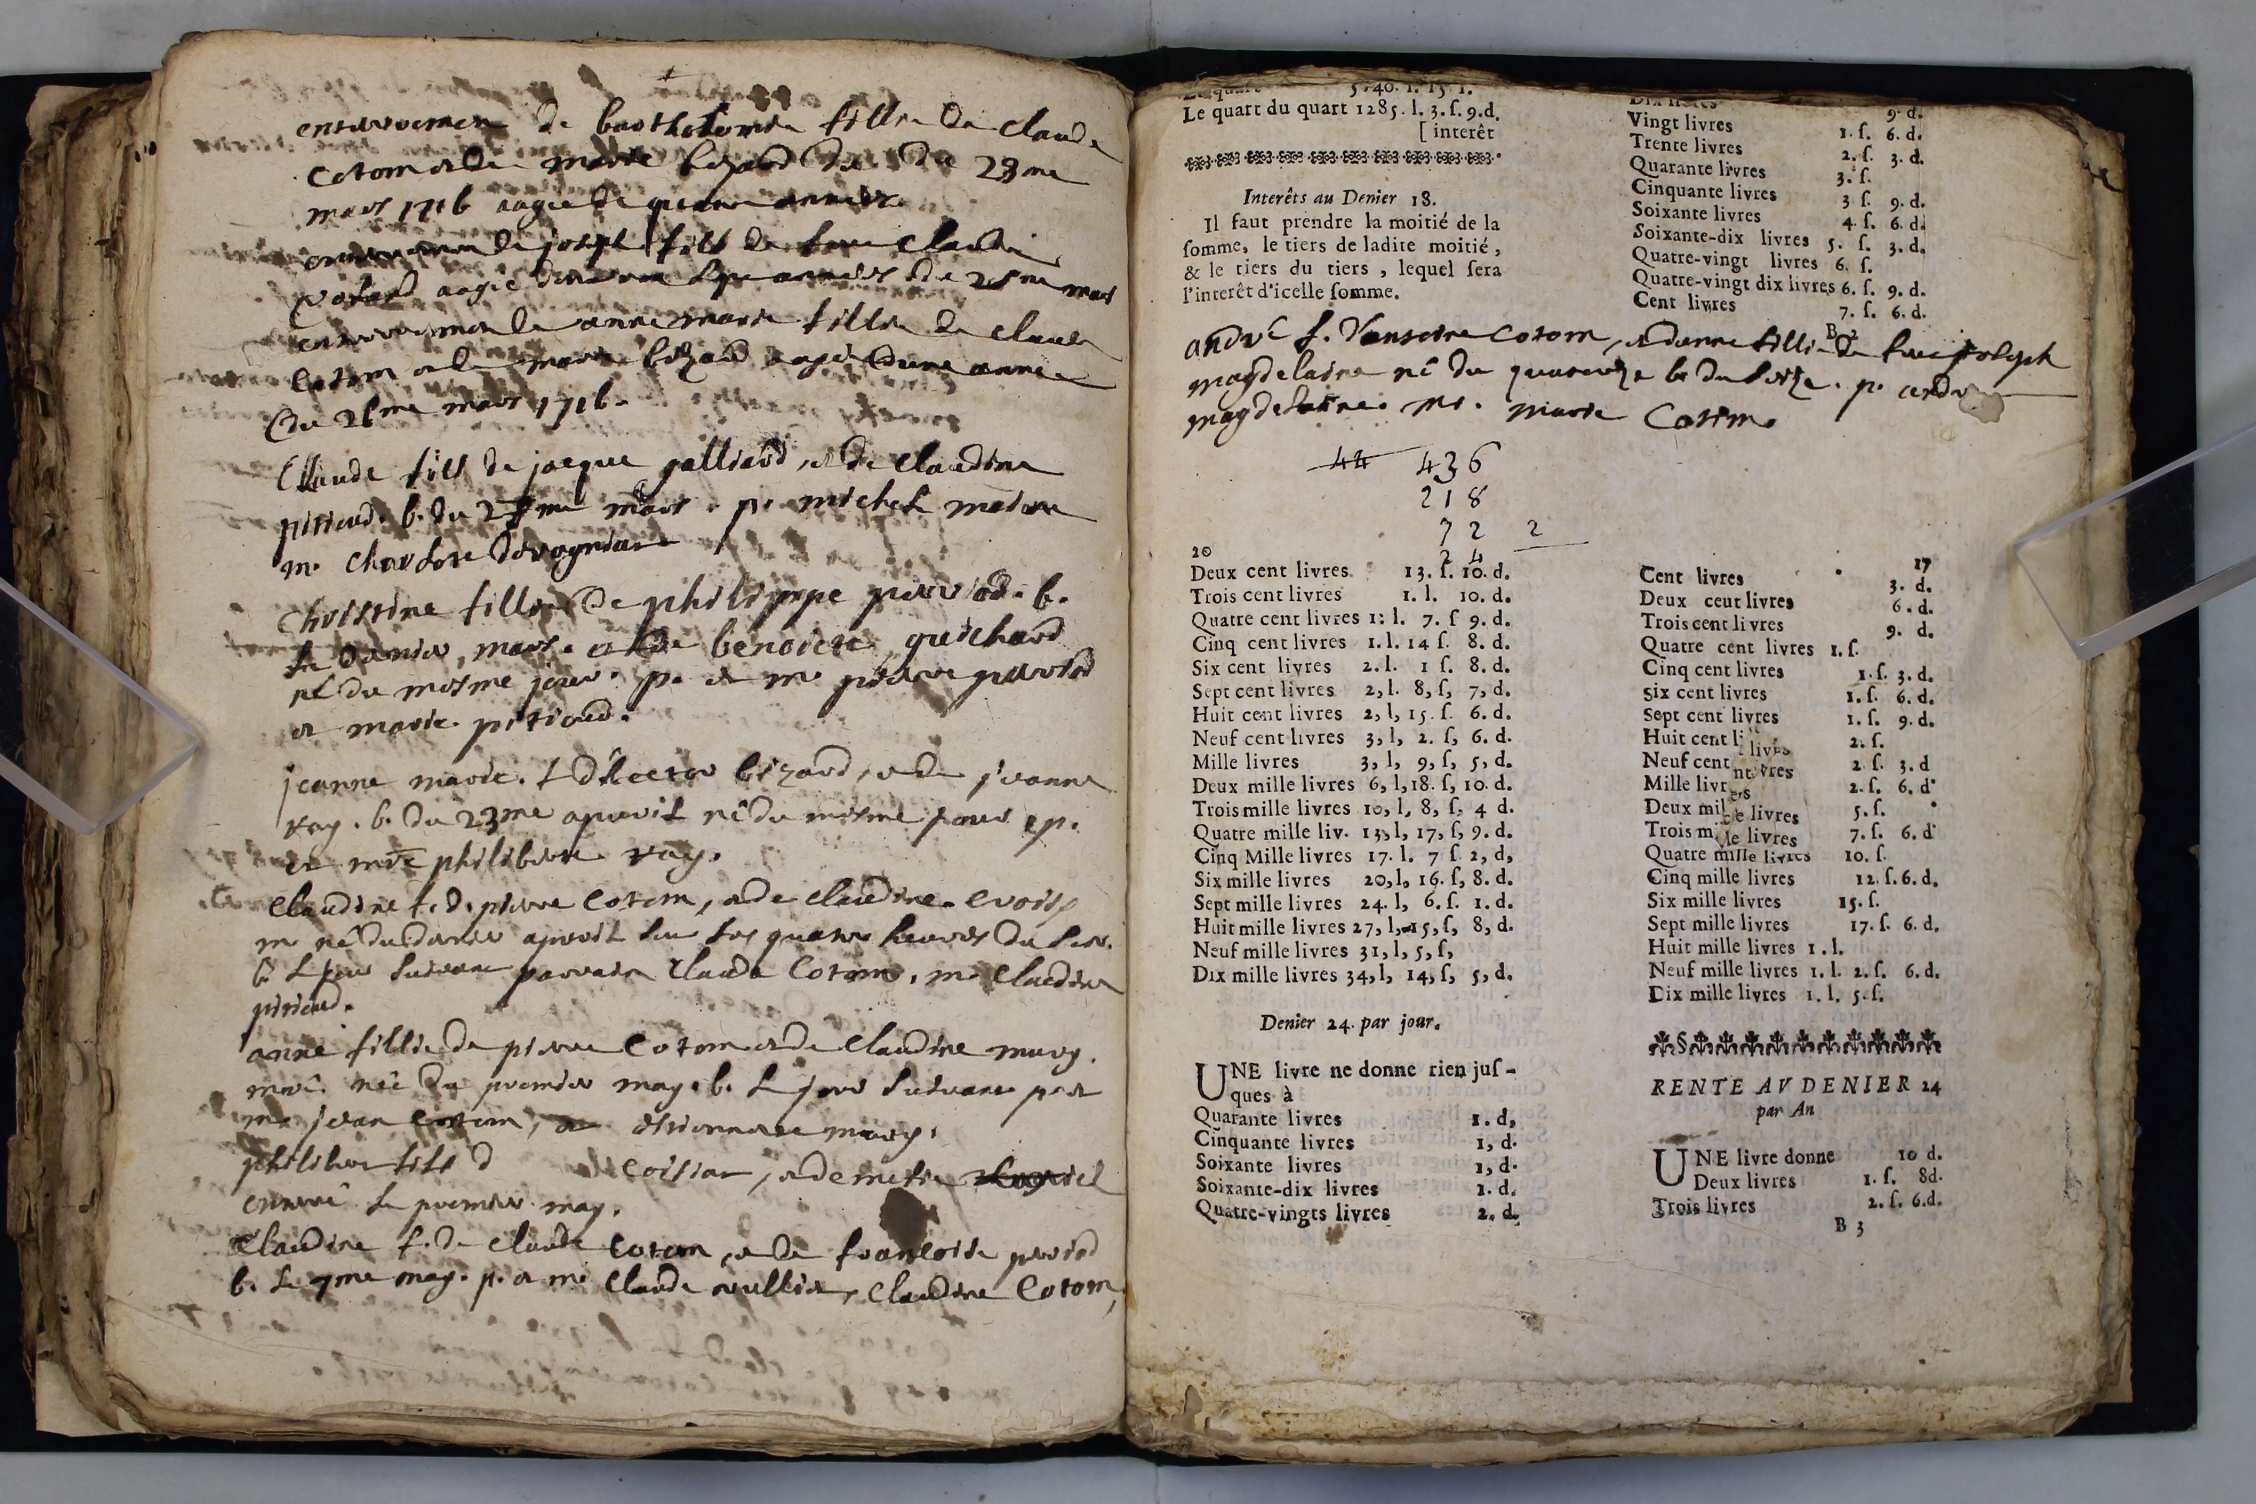 enterrement de bartholomie fillie de claude
Cotom et de marie bezard du 23me
mars 1716 aagée de quatre années
enterrement de joseph fils de feu claude
aagé de années du 25me mars
enterrement de anne marie fillie de claude
Cotom et de marie bezard aagée d'une année
du 26me mars 1716.
Claude fils de jacque galliard, et de claudine
pitioud. b. du mars. p. michel
m. Charlote
Christine fillie de philippe perriod. b.
le dernier mars. et de benoiete guichard
né du mesme jour. p. et me pierre perriod
et marie. pitioud.
jeanne marie. f. d'hector bezard, et de jeanne
ray. b. du 23me apvril né du mesme jour p.
et mre philiberte ray.
Claudine f. d. pierre Cotom, et de claudine.
né du dernier apvril sur les quatre heures du soir.
b. le jour suivant parrain Claude Cotom. me Claudine
pitioud.
anne fillie de pierre Cotom et de Claudine mury.
née du premier may. b. le jour suivant par
me jean Cotom, et estiennete mury.
philibert fils d Coissiar, et de
enterré le premier may.
Claudine f. de Claude Cotom, et de francoise perriod
b. le 7me may. p. et me Claude rullier, Claudine Cotom,
5140. l. 15. ſ.
Le quart du quart 1285. l. 3. ſ. 9. d.
[ interêt
Interêts au Denier 18.
Il faut prendre la moitié de la
ſomme, le tiers de ladite moitié,
& le tiers du tiers, lequel ſera
l'interêt d'icelle ſomme.
9. d.
Vingt livres 1. ſ. 6. d.
Trente livres 2. ſ. 3. d.
Quarante livres 3. ſ.
Cinquante livres 3 ſ. 9. d.
Soixante livres 4. ſ. 6. d.
Soixante-dix livres 5. ſ. 3. d.
Quatre-vingt livres 6. ſ.
Quatre-vingt dix livres 6. ſ. 9. d.
Cent livres 7. ſ. 6. d.
B 2
andré f. d'antoine Cotom, et danne fillie de feu joseph
magdelaine né du quatorze b. du seize. p. andre
magdelaine. me. marie Cotim.
44 436
218
72 2
24
20
Deux cent livres 13. ſ. 10. d.
Trois cent livres 1. l. 10. d.
Quatre cent livres 1: l. 7. ſ 9. d.
Cinq cent livres 1. l. 14 ſ. 8. d.
Six cent livres 2. l. 1 ſ. 8. d.
Sept cent livres 2, l. 8, ſ, 7, d.
Huit cent livres 2, l, 15. ſ. 6. d.
Neuf cent livres 3, l, 2. ſ, 6. d.
Mille livres 3, l, 9, ſ, 5, d.
Deux mille livres 6, l, 18. ſ, 10. d.
Trois mille livres 10, l, 8, ſ, 4 d.
Quatre mille liv. 13, l, 17, ſ, 9. d.
Cinq Mille livres 17. l. 7 ſ. 2, d,
Six mille livres 20, l, 16. ſ, 8. d.
Sept mille livres 24. l, 6. ſ. 1. d.
Huit mille livres 27, l, 15, ſ, 8, d.
Neuf mille livres 31, l, 5, ſ,
Dix mille livres 34, l, 14, ſ, 5, d.
Denier 24. par jour.
UNE livre ne donne rien juſ-
ques à
Quarante livres 1. d,
Cinquante livres 1, d.
Soixante livres 1, d.
Soixante-dix livres 1. d.
Quatre-vingts livres 2. d.
17
Cent livres 3. d.
Deux ceut livres 6. d.
Trois cent livres 9. d.
Quatre cent livres 1. ſ.
Cinq cent livres 1. ſ. 3. d.
Six cent livres 1. ſ. 6. d.
Sept cent livres 1. ſ. 9. d.
Huit cent 2. ſ.
Neuf cent 2 ſ. 3. d
Mille livr 2. ſ. 6. d
Deux mil livres 5. ſ.
Trois m livres 7. ſ. 6. d
Quatre mille livres 10. ſ.
Cinq mille livres 12. ſ. 6. d.
Six mille livres 15. ſ.
Sept mille livres 17. ſ. 6. d.
Huit mille livres 1. l.
Neuf mille livres 1. l. 2. ſ. 6. d.
Dix mille livres 1. l. 5. ſ.
RENTE AV DENIER 24
par An
UNE livre donne 10 d.
Deux livres 1. ſ. 8 d.
Trois livres 2. ſ. 6. d.
B 3